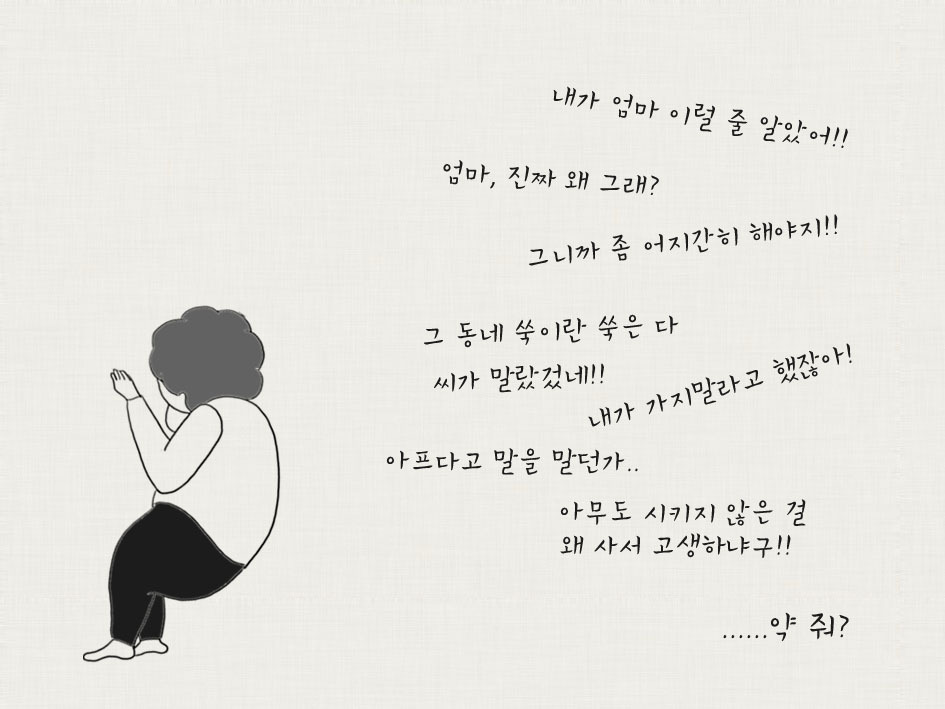 내가 엄마 이럴 줄 알았어!!
엄마, 진짜 왜 그래?
그니까 좀 어지간히 해야지!!
그 동네 쑥이란 쑥은 다
씨가 말랐겄네!!
내가 가지말라고 했잖아!
아프다고 말을 말던가..
아무도 시키지 않은 걸
왜 사서 고생하냐구!!
......약 줘?